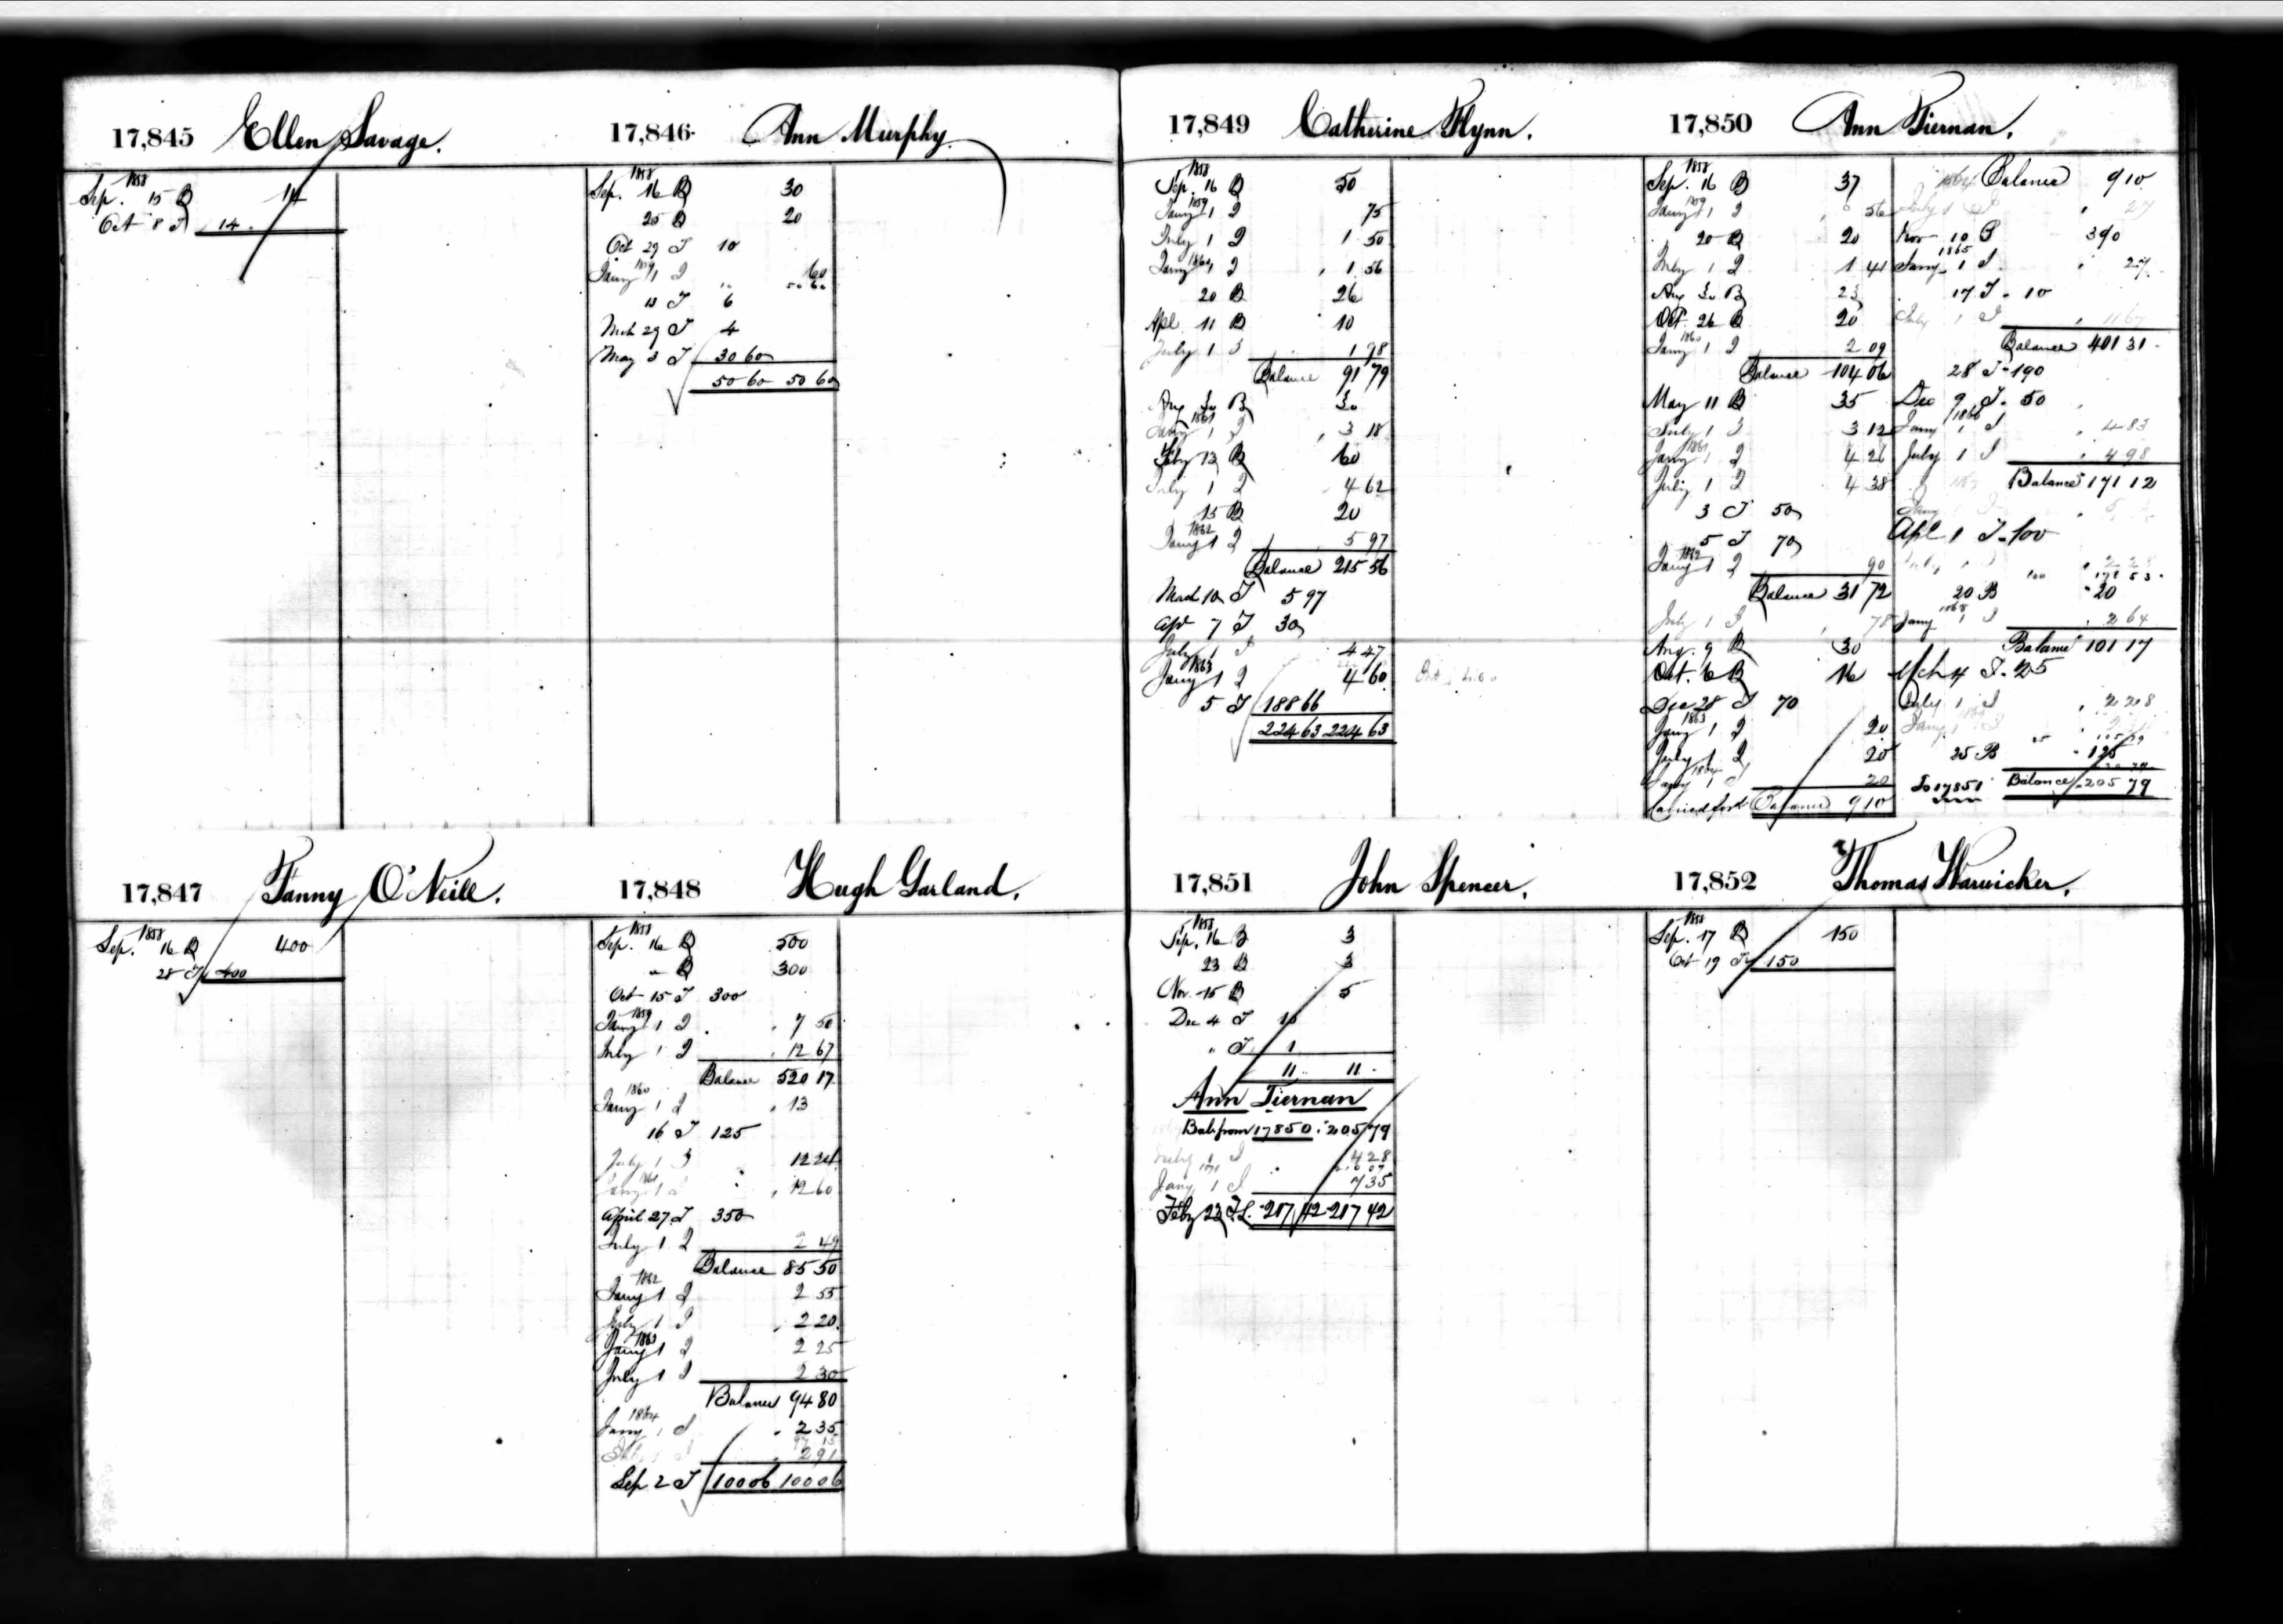 17,845 Ellen Savage.
1858
Sep. 15 B 14
Oct 8 T 14
17,846 Ann Murphy
1858
Sep. 16 B 30
25 B 20
Oct 29 T 10
1859
Jany 1 I 60
50 60
13 T 6
Mch 29 T 4
May 3 T 30 60
50 60 50 60
17,847 Fanny O'Neill.
1858
Sep. 16 B 400
28 T 400
17,848 Hugh Garland.
1858
Sep. 16 B 500
" B 300
Oct 15 T 300
1859
Jany 1 I 7 50
July 1 I 12 67
Balance 520 17
1860
Jany 1 I 13
16 T 125
July 1 I 12 24
1861
Jany 1 I 12 60
April 27 T 350
July 1 I 2 49
Balance 85 50
1862
Jany 1 I 2 55
July 1 I 2 20
1863
Jany 1 I 2 25
July 1 I 2 30
Balance 94 80
1864
Jany 1 I 2 35
97 15
2 91
Sep 2 T 100 06 100 06
17,849 Catherine Flynn.
1858
Sep. 16 B 50
1859
Jany 1 I 75
July 1 I 1 50
1860
Jany 1 I 1 56
20 B 26
Apl 11 B 10
July 1 I 1 98
Balance 91 79
Aug 30 B 30
1861
Jany 1 I 3 18
Feby 13 B 60
July 1 I 4 62
15 B 20
1862
Jany 1 I 5 97
Balance 215 56
March 10 T 5 97
Apr 7 T 30
July 1 I 4 47
1863
Jany 1 I 4 60
5 T 188 66
224 63 224 63
17,850 Ann Tiernan.
1858
Sep. 16 B 37
1859
Jany 1 I 56
20 B 20
July 1 I 1 41
Aug 30 B 23
Oct. 26 B 20
1860
Jany 1 I 2 09
Balance 104 06
May 11 B 35
July 1 I 3 12
1861
Jany 1 I 4 26
July 1 I 4 38
3 T 50
5 T 70
1862
Jany 1 I 90
Balance 31 72
July 1 I 78
Aug. 9 B 30
Oct. 6 B 16
Dec 28 T 70
1863
Jany 1 I 20
July 1 I 20
1864
Jany 1 I 20
Carried ford Balance 9 10
1864 Balance 9 10
July 1 I 27
Nov 10 B 390
1865
Jany 1 I 27
17 T 10
July 1 I 11 67
Balance 401 31
28 T 190
Dec 9 T 50
1866
Jany 1 I 4 83
July 1 I 4 98
Balance 171 12
Jany
Apl 1 T 100
July 1 I
178 53
20 B 20
1868
Jany 1 I 2 64
Balance 101 17
Mch 4 T 25
July 1 I 2 28
Jany 1 I
25 B 125
To 17851 Balance 205 79
17,851 John Spencer.
1858
Sep. 16 B 3
23 B 3
Nov. 15 B 5
Dec 4 T 10
" T 1
11 11
Ann Tiernan
Bal from 17850 205 79
July 1 I 4 28
Jany 1 I 7 35
Feby 23 T 217 42 217 42
17,852 Thomas Warwicker.
1858
Sep. 17 B 150
Oct 19 T 150